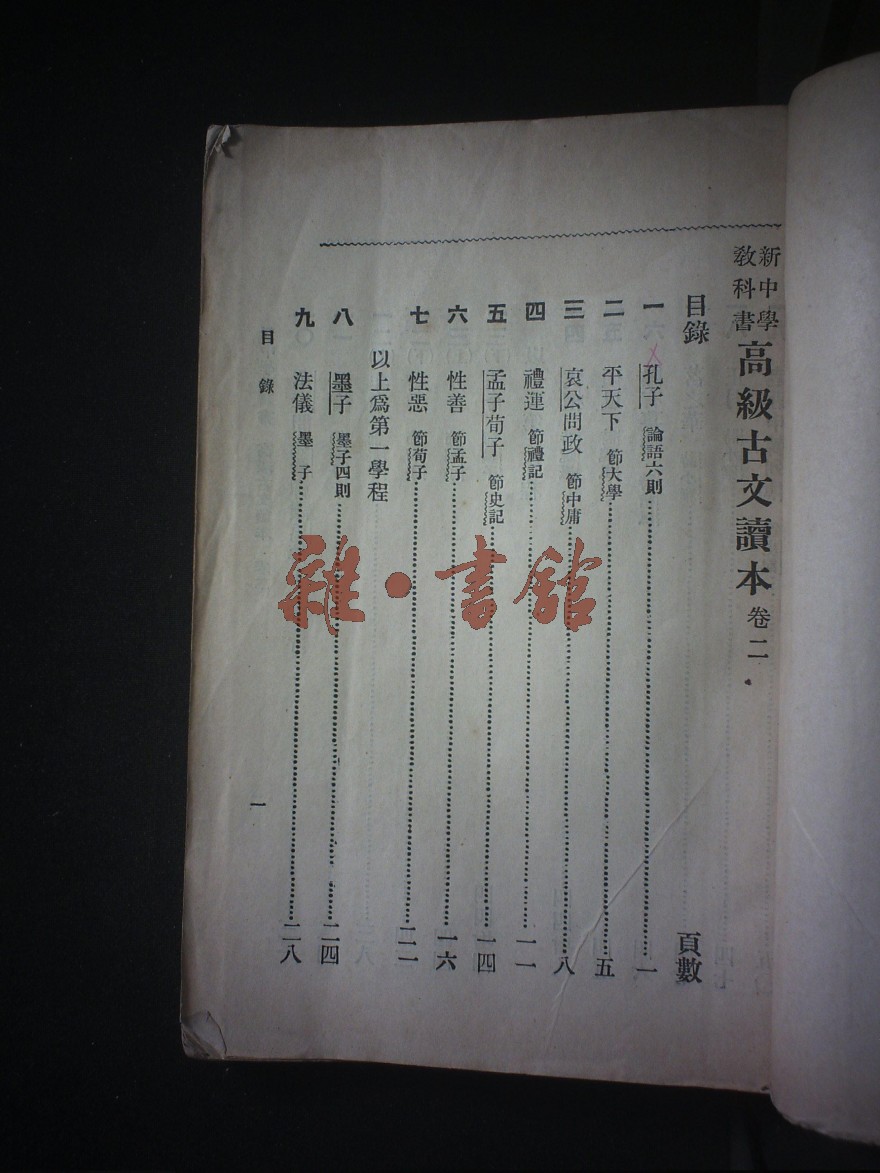 新中學
教科書
高級古文讀本 卷二
目錄 頁數
一 孔子 論語六則……一
二 平天下 節大學……五
三 哀公問政 節中庸……八
四 禮運 節禮記……一一
五 孟子荀子 節史記……一四
六 性善 節孟子……一六
七 性惡 節荀子……二一
以上爲第一學程
八 墨子 墨子四則……二四
九 法儀 墨子……二八
目錄 一
雜·書館